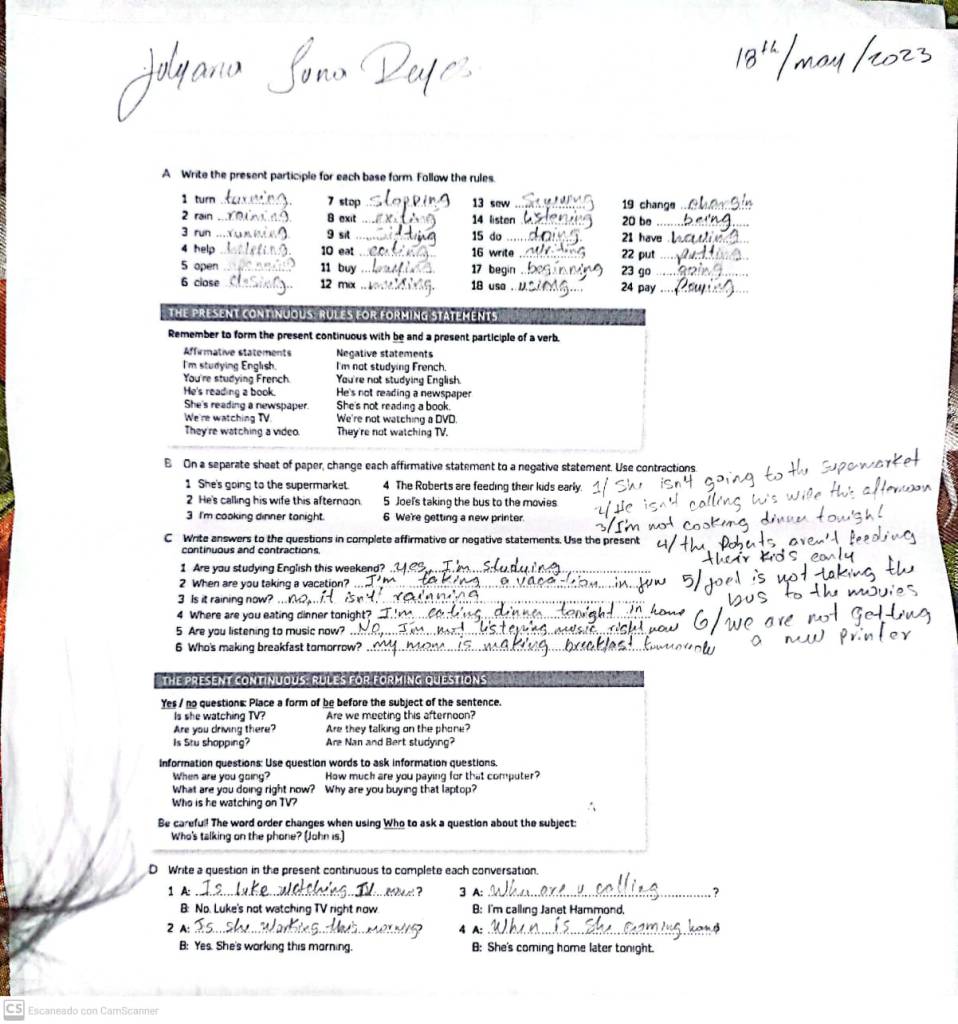 18th/may/2023
A Write the present participle for each base form. Follow the rules.
1 turn turning. 7 stop stopping 13 sew 19 change changin
2 rain raining. 8 exit exiting 14 listen listening 20 be being.
3 run running. 9 sit sitting 15 do doing. 21 have having.
4 help 10 eat eating. 16 write writing 22 put putting
5 open 11 buy 17 begin beginning 23 go going
6 close closing. 12 mix 18 use using. 24 pay Paying
THE PRESENT CONTINUOUS: RULES FOR FORMING STATEMENTS
Remember to form the present continuous with be and a present participle of a verb.
Affirmative statements Negative statements
I'm studying English. I'm not studying French.
You're studying French. You're not studying English.
He's reading a book. He's not reading a newspaper
She's reading a newspaper. She's not reading a book.
We're watching TV. We're not watching a DVD.
They're watching a video. They're not watching TV.
B On a separate sheet of paper, change each affirmative statement to a negative statement. Use contractions.
1 She's going to the supermarket. 4 The Roberts are feeding their kids early.
2 He's calling his wife this afternoon. 5 Joel's taking the bus to the movies.
3 I'm cooking dinner tonight. 6 We're getting a new printer.
1/ She isn't going to the supermarket
2/ He isn't calling his wife this afternoon
3/ I'm not cooking dinner tonigh!
4/ the Roberts aren't feeding
their kids early
5/ Joel is not taking the
bus to the movies
6/ we are not getting
a new printer
C Write answers to the questions in complete affirmative or negative statements. Use the present
continuous and contractions.
1 Are you studying English this weekend? yes, I'm studying
2 When are you taking a vacation? I'm taking a vacation in
3 Is it raining now? no, it isn't rainning
4 Where are you eating dinner tonight? I'm eating dinner tonight in home
5 Are you listening to music now? No, I'm not listening music right now
6 Who's making breakfast tomorrow? my mom is making breakfast
THE PRESENT CONTINUOUS: RULES FOR FORMING QUESTIONS
Yes / no questions: Place a form of be before the subject of the sentence.
Is she watching TV? Are we meeting this afternoon?
Are you driving there? Are they talking on the phone?
Is Stu shopping? Are Nan and Bert studying?
Information questions: Use question words to ask information questions.
When are you going? How much are you paying for that computer?
What are you doing right now? Why are you buying that laptop?
Who is he watching on TV?
Be careful! The word order changes when using Who to ask a question about the subject:
Who's talking on the phone? (John is.)
D Write a question in the present continuous to complete each conversation.
1 A: Is luke watching TV now? 3 A: Who are u calling ?
B: No. Luke's not watching TV right now. B: I'm calling Janet Hammond.
2 A: Is she working this morning? 4 A: When is she coming home
B: Yes. She's working this morning. B: She's coming home later tonight.
CS Escaneado con CamScanner